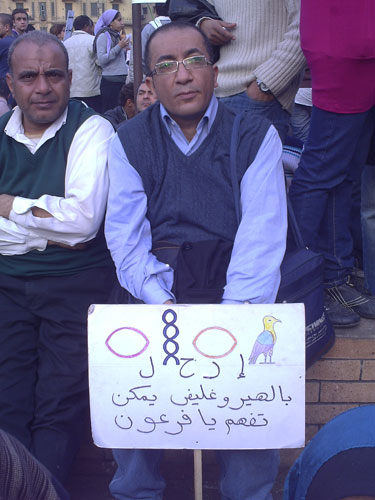 إ ر ح ل
بالهيروغليفى يمكن
تفهم يا فرعون